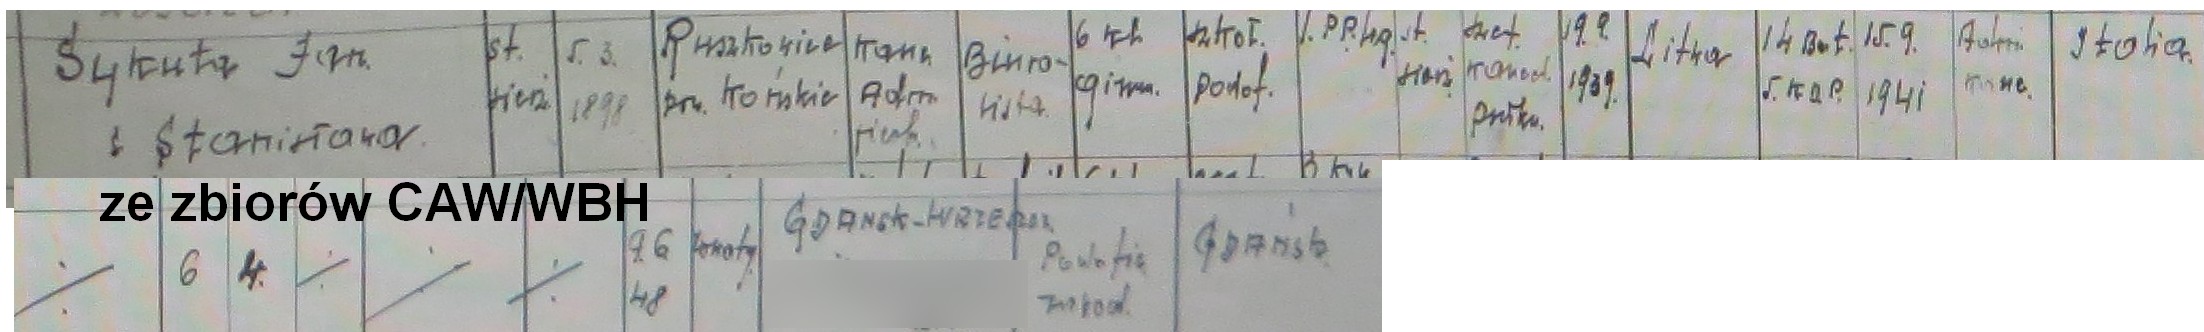 Sykuta Jan
s Stanisława
st. sierż.
5. 3. 1898
Ruszkowice
pow. Końskie
kanc. Adm
Biuro-
lista
6 kl.
gimn.
szkoł.
podof.
1. PP.Leg.
st. sierż
szef.
zawod.
19.9.
1939.
Litwa
14 Bat.
5. KDP.
15.9.
1941
Admi
Italia
ze zbiorów CAW/WBH
6
4.
9.6
48
żonaty
GDAŃSK-WRZESZCZ
GDAŃSK